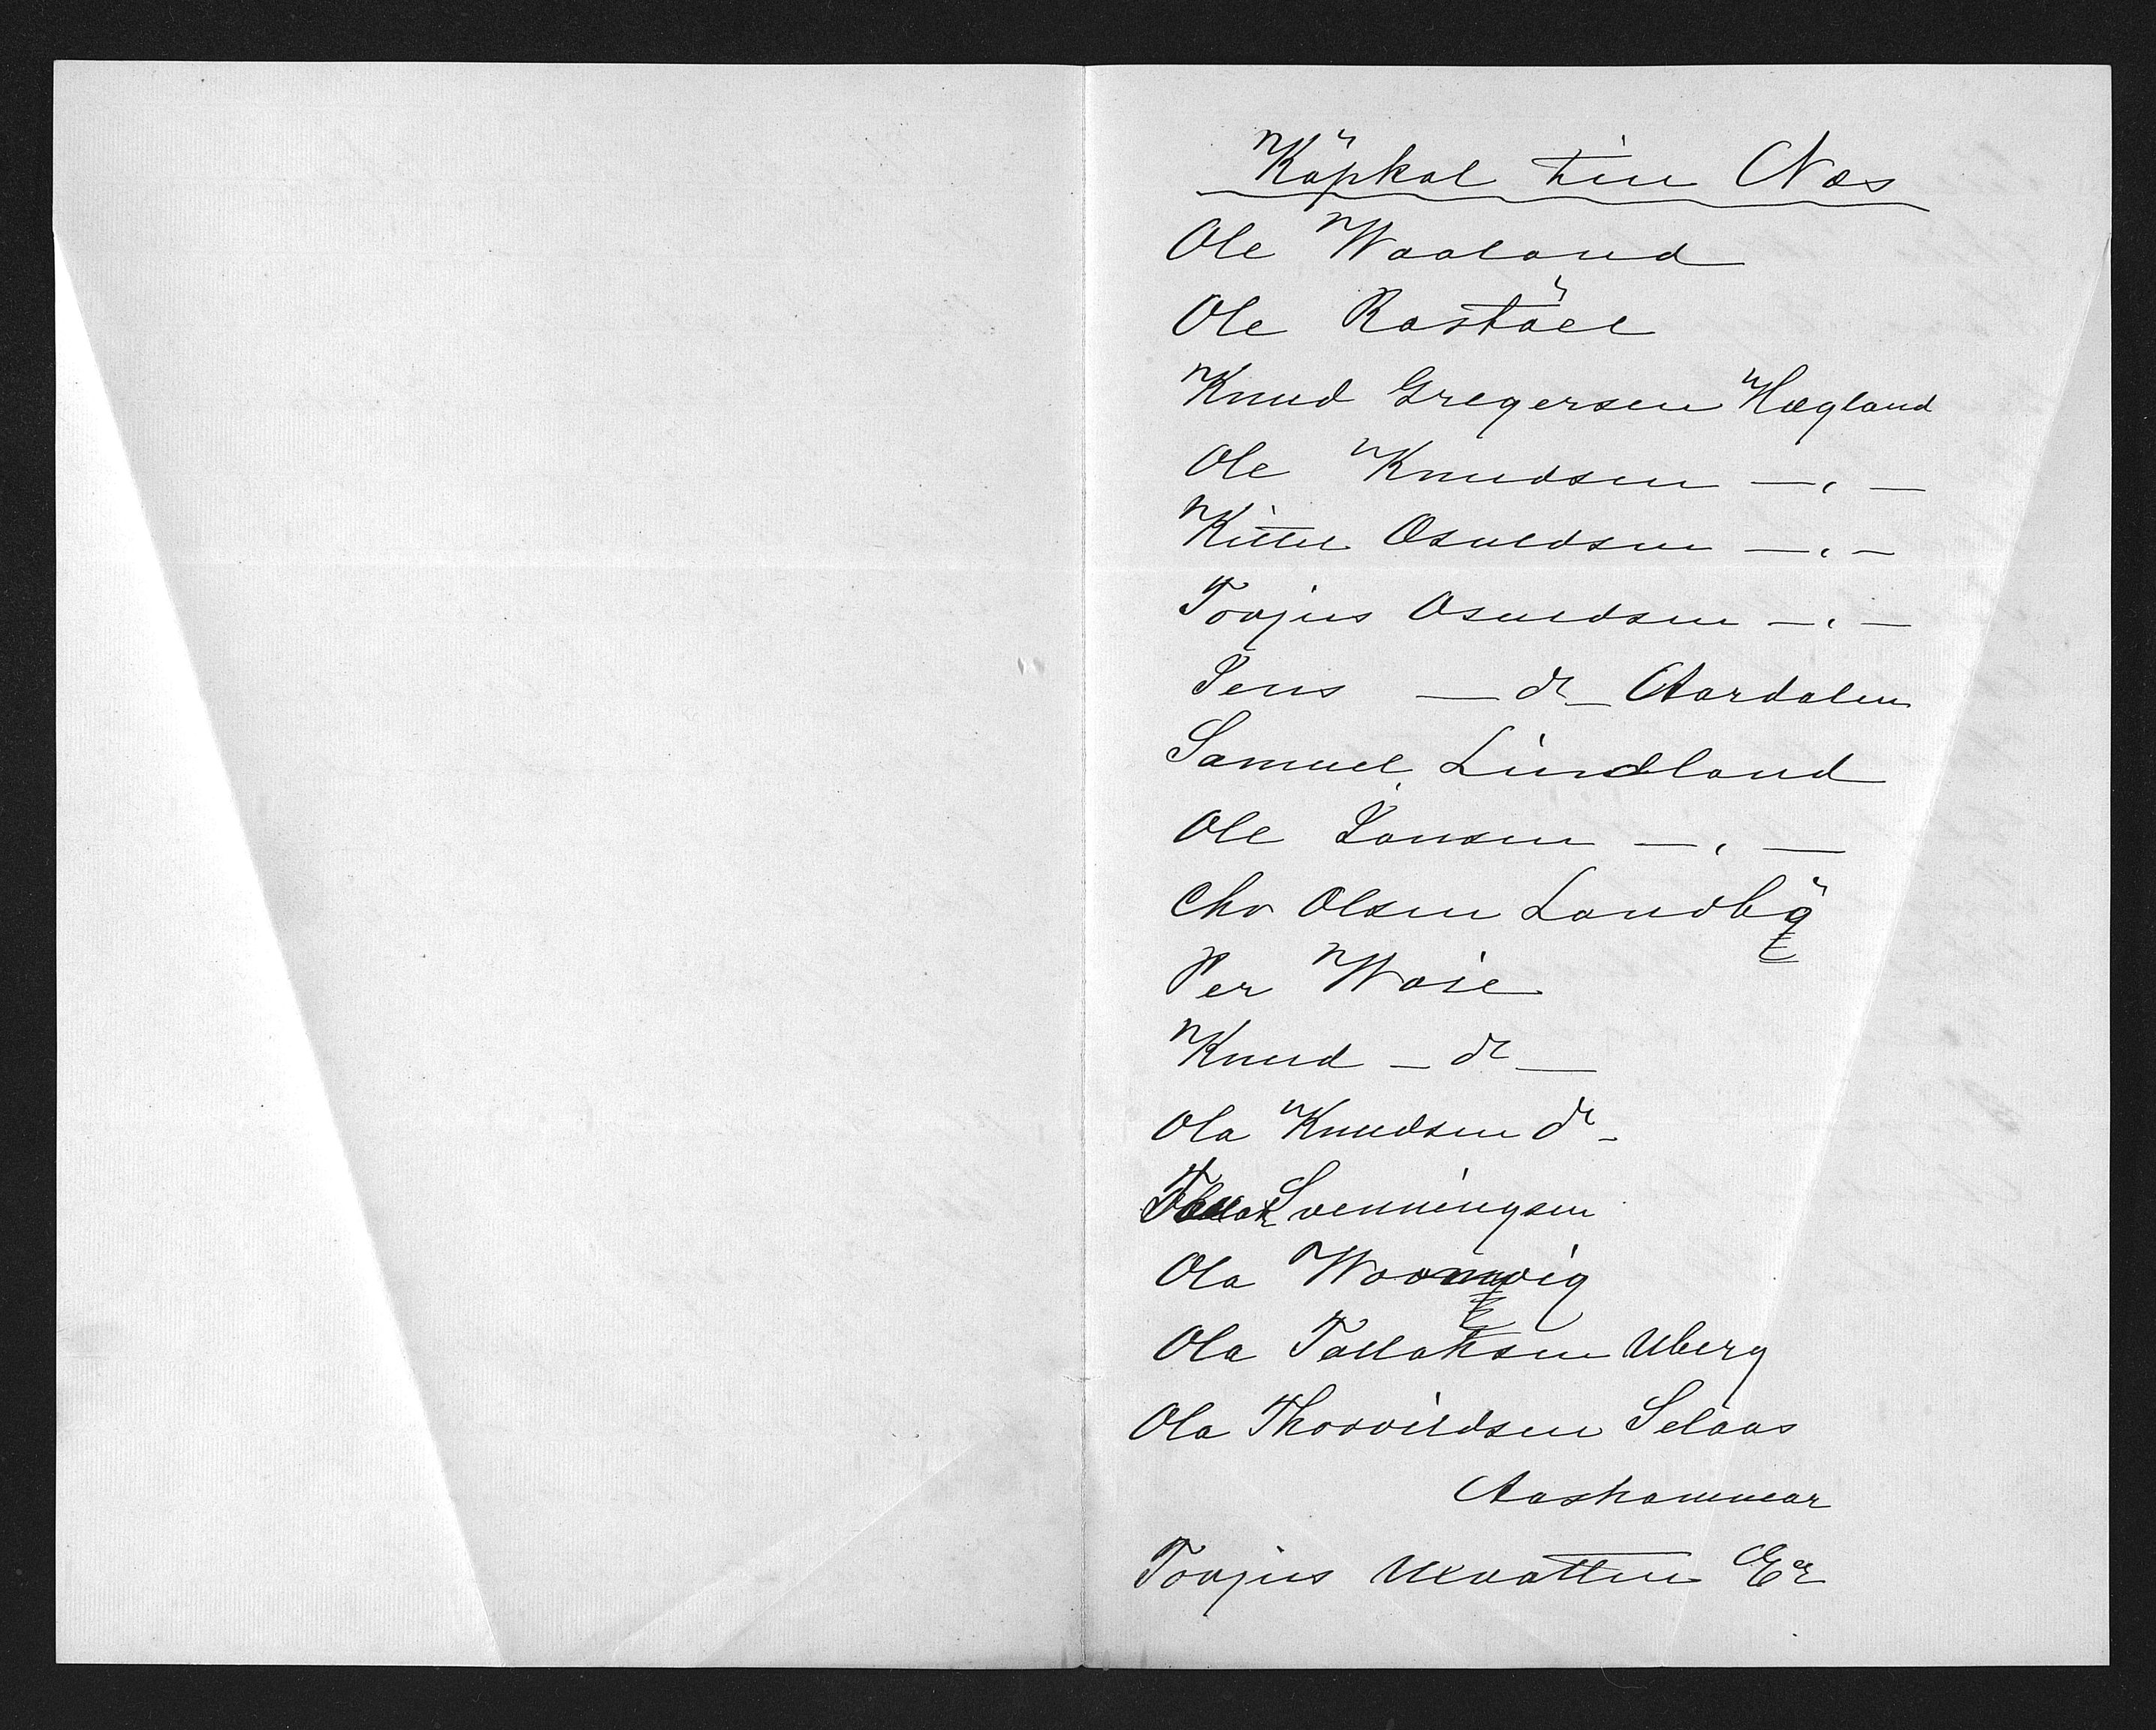 Köpkol till Næs
Ole Waaland
Ole Rostöel
Knud Gregersen Hægland
Ole Knudsen — „ —
Kittel Osuldsen — „ —
Torjus Osuldsen — „ —
Jens — do — Aardalen
Samuel Lindland
Ole Jansen — „ —
Chr Olsen Landbö
Per Woie
Knud — do —
Ola Knudsen do -
Tellak Svenningsen
Ola
Ola Tallaksen Uberg
Ola Thorvildsen Selaas
Aashammar
Torjus Ulvatten